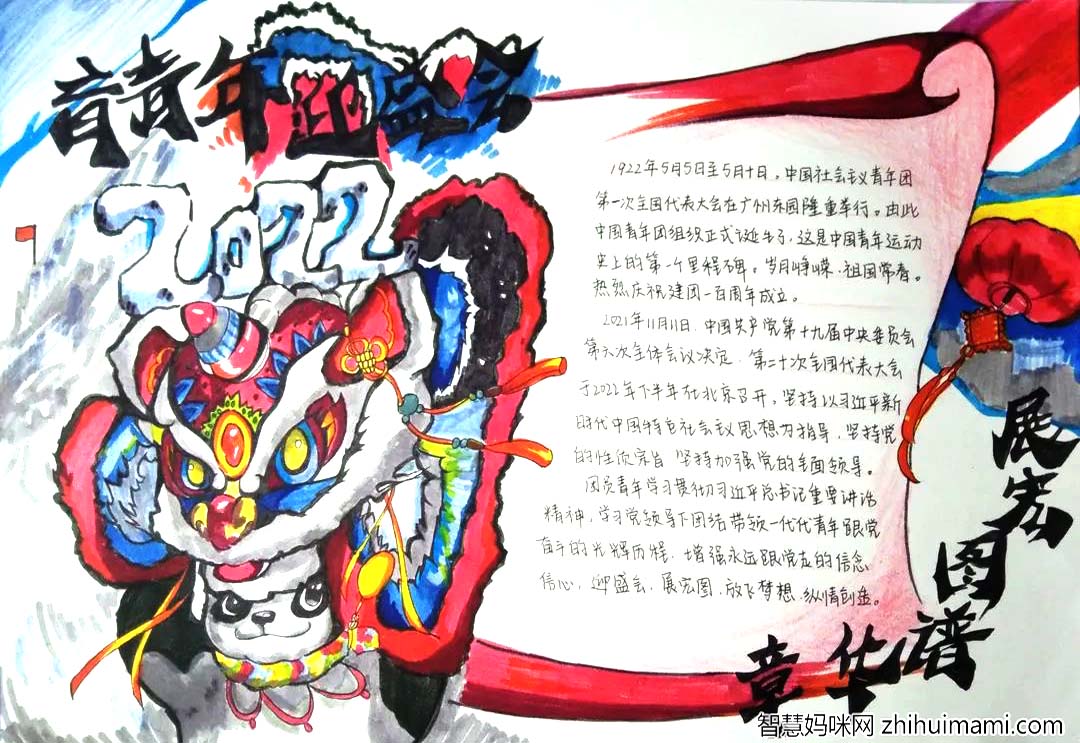 青年迎盛会
2022
1922年5月5日至5月十日。中国社会主义青年团
第一次全国代表大会在广州东园隆重举行。由此
中国青年团组织正式诞生了,这是中国青年运动
史上的第一个里程碑。岁月峥嵘、祖国常春。
热烈庆祝建团一百周年成立。
2021年11月11日,中国共产党第十九届中央委员会
第六次全体会议决定,第二十次全国代表大会
于2022年下半年在北京召开,坚持以习近平新
时代中国特色社会主义思想为指导,坚持党
的性质宗旨 坚持加强党的全面领导。
团员青年学习贯彻习近平总书记重要讲话
精神,学习党领导下团结带领一代代青年跟党
奋斗的光辉历程,增强永远跟党走的信念
信心,迎盛会、展宏图、放飞梦想、纵情创造。
展宏图
谱华章
智慧妈咪网 zhihuimami.com